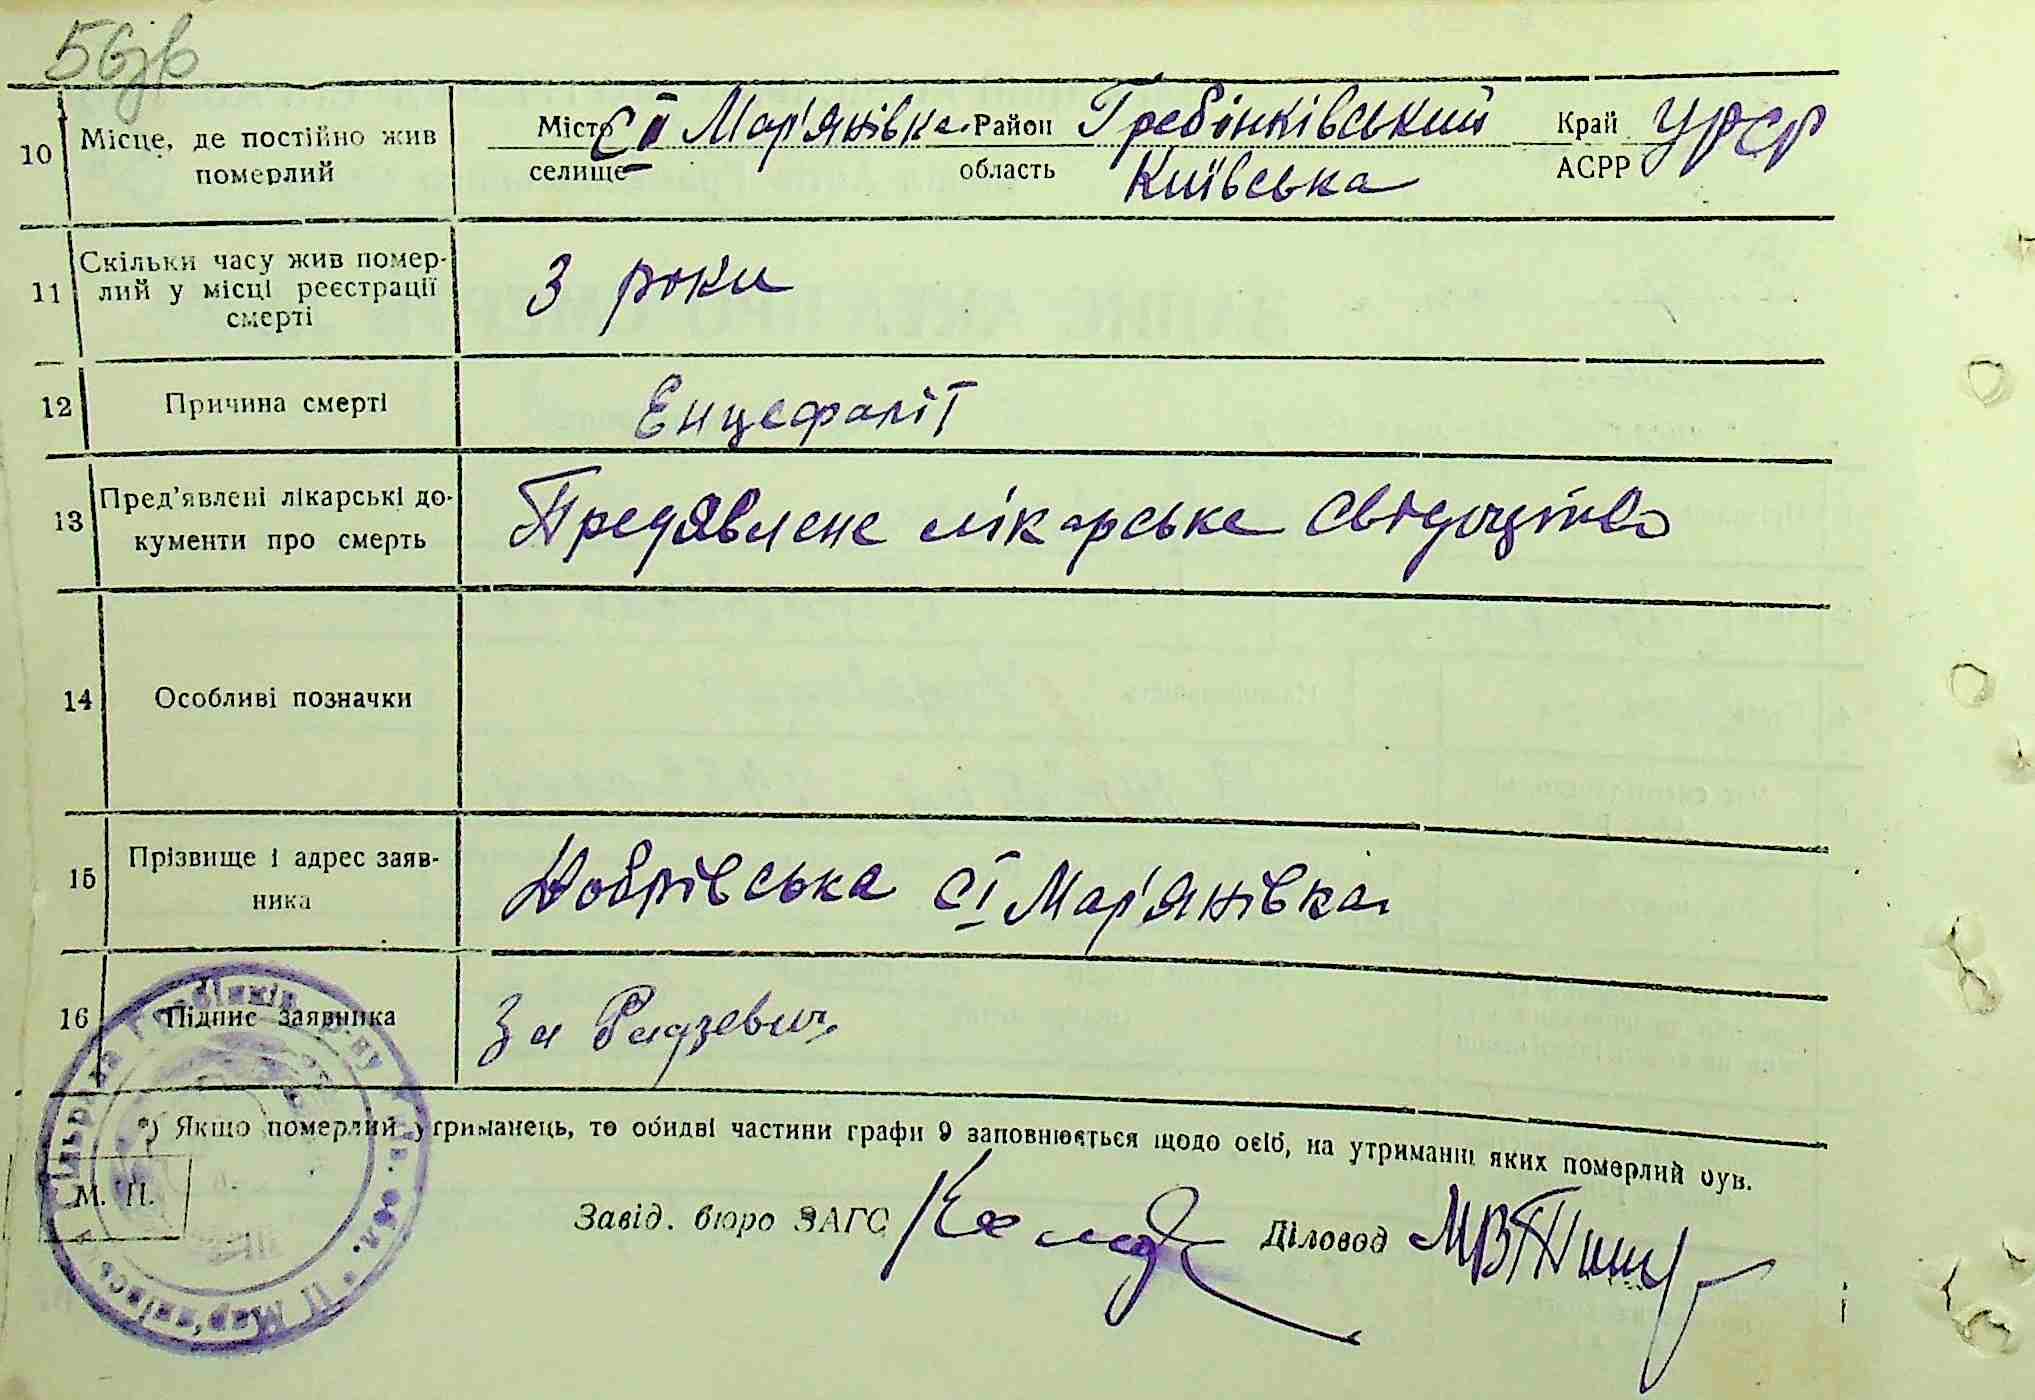 56зв
10 Місце, де постійно жив Місто с ІІ Мар'янівка Район Гребінківський Край УРСР
померлий селище область Київська АСРР
11 Скільки часу жив помер-
лий у місці реєстрації 3 роки
смерті
12 Причина смерті Енцефаліт
13 Пред'явлені лікарські до- Предявлене лікарське свідоцтво
кументи про смерть
14 Особливі позначки
15 Прізвище і адрес заяв- Добрівська с І Мар'янівка
ника
16 Підпис заявника За Радзевич
*) Якщо померлий утриманець, то обидві частини графи 9 заповнюється щодо осіб, на утриманні яких померлий був.
М. П.
Завід. бюро ЗАГС Діловод